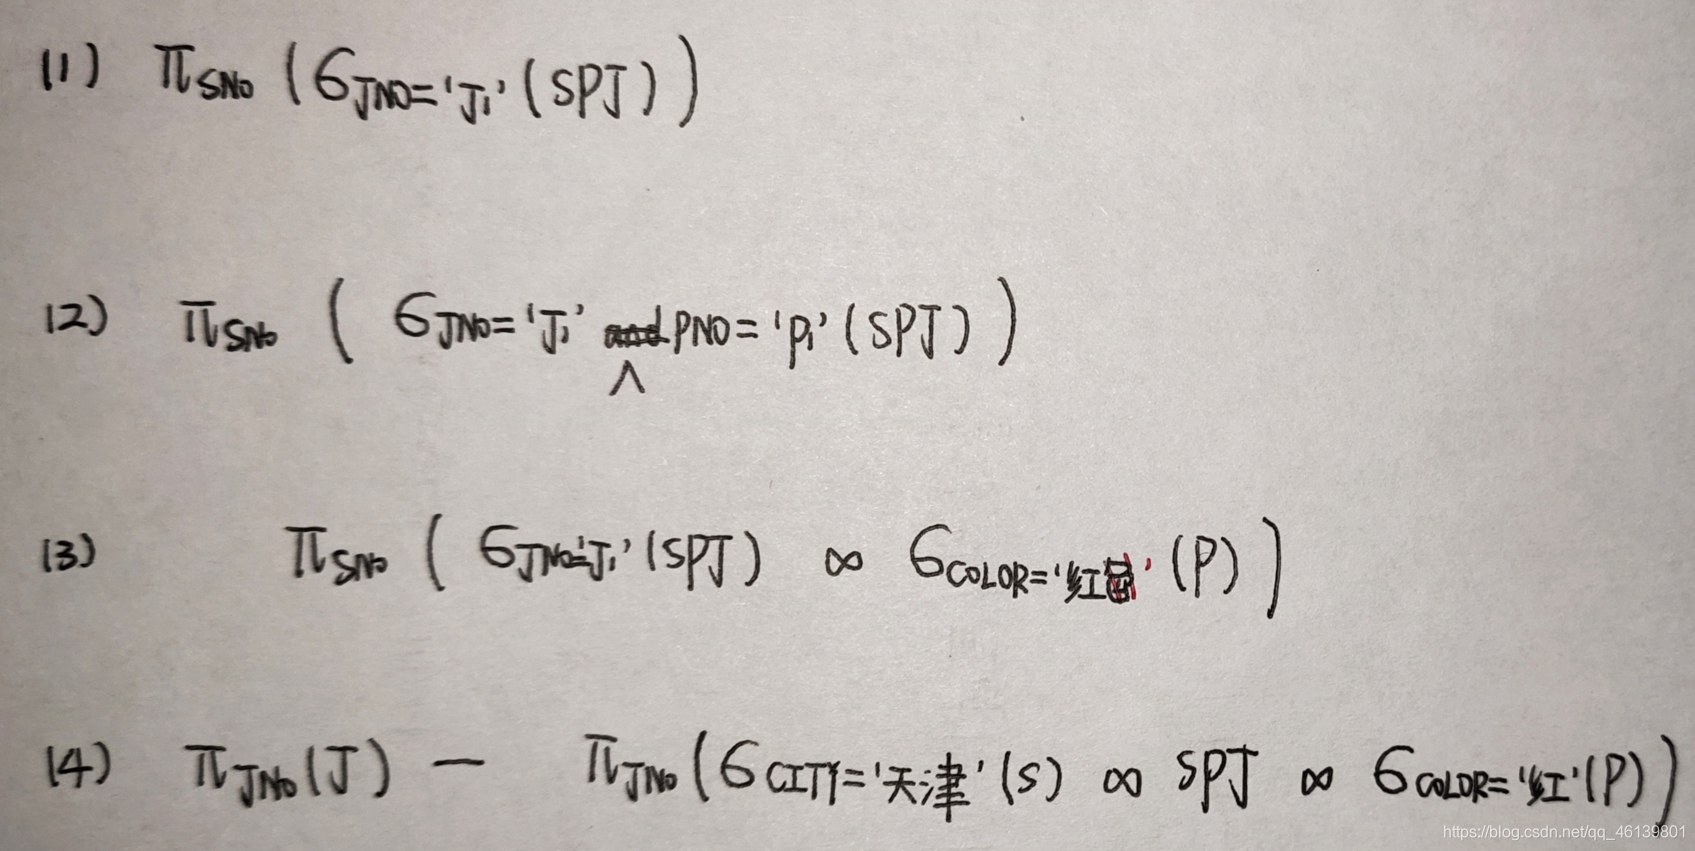 (1) π SNO ( σ JNO='J1' (SPJ) )
(2) π SNO ( σ JNO='J1' ∧ PNO='P1' (SPJ) )
(3) π SNO ( σ JNO='J1' (SPJ) ∞ σ COLOR='红' (P) )
(4) π JNO (J) — π JNO ( σ CITY='天津' (S) ∞ SPJ ∞ σ COLOR='红' (P) )
https://blog.csdn.net/qq_46139801